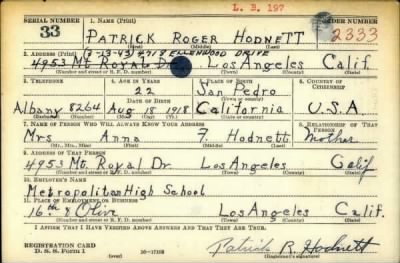 L. B. 197
SERIAL NUMBER 1. NAME (Print) ORDER NUMBER
33 PATRICK ROGER HODNETT 2333
(First) (Middle) (Last)
2. ADDRESS (Print) (7-13-43) 4918 ELLENWOOD DRIVE
4953 Mt. Royal Dr. Los Angeles Calif.
(Number and street or R. F. D. number) (Town) (County) (State)
3. TELEPHONE 4. AGE IN YEARS 5. PLACE OF BIRTH 6. COUNTRY OF CITIZENSHIP
22 San Pedro
DATE OF BIRTH (Town or county)
Albany 8264 Aug 18 1918 California U.S.A.
(Exchange) (Number) (Mo.) (Day) (Yr.) (State or country)
7. NAME OF PERSON WHO WILL ALWAYS KNOW YOUR ADDRESS 8. RELATIONSHIP OF THAT PERSON
Mrs Anna F. Hodnett Mother
(Mr., Mrs., Miss) (First) (Middle) (Last)
9. ADDRESS OF THAT PERSON
4953 Mt. Royal Dr. Los Angeles Calif
(Number and street or R. F. D. number) (Town) (County) (State)
10. EMPLOYER'S NAME
Metropolitan High School
11. PLACE OF EMPLOYMENT OR BUSINESS
16th & Olive Los Angeles Calif.
(Number and street or R. F. D. number) (Town) (County) (State)
I AFFIRM THAT I HAVE VERIFIED ABOVE ANSWERS AND THAT THEY ARE TRUE.
REGISTRATION CARD
D. S. S. Form 1 16-17105 Patrick R. Hodnett
(Registrant's signature)